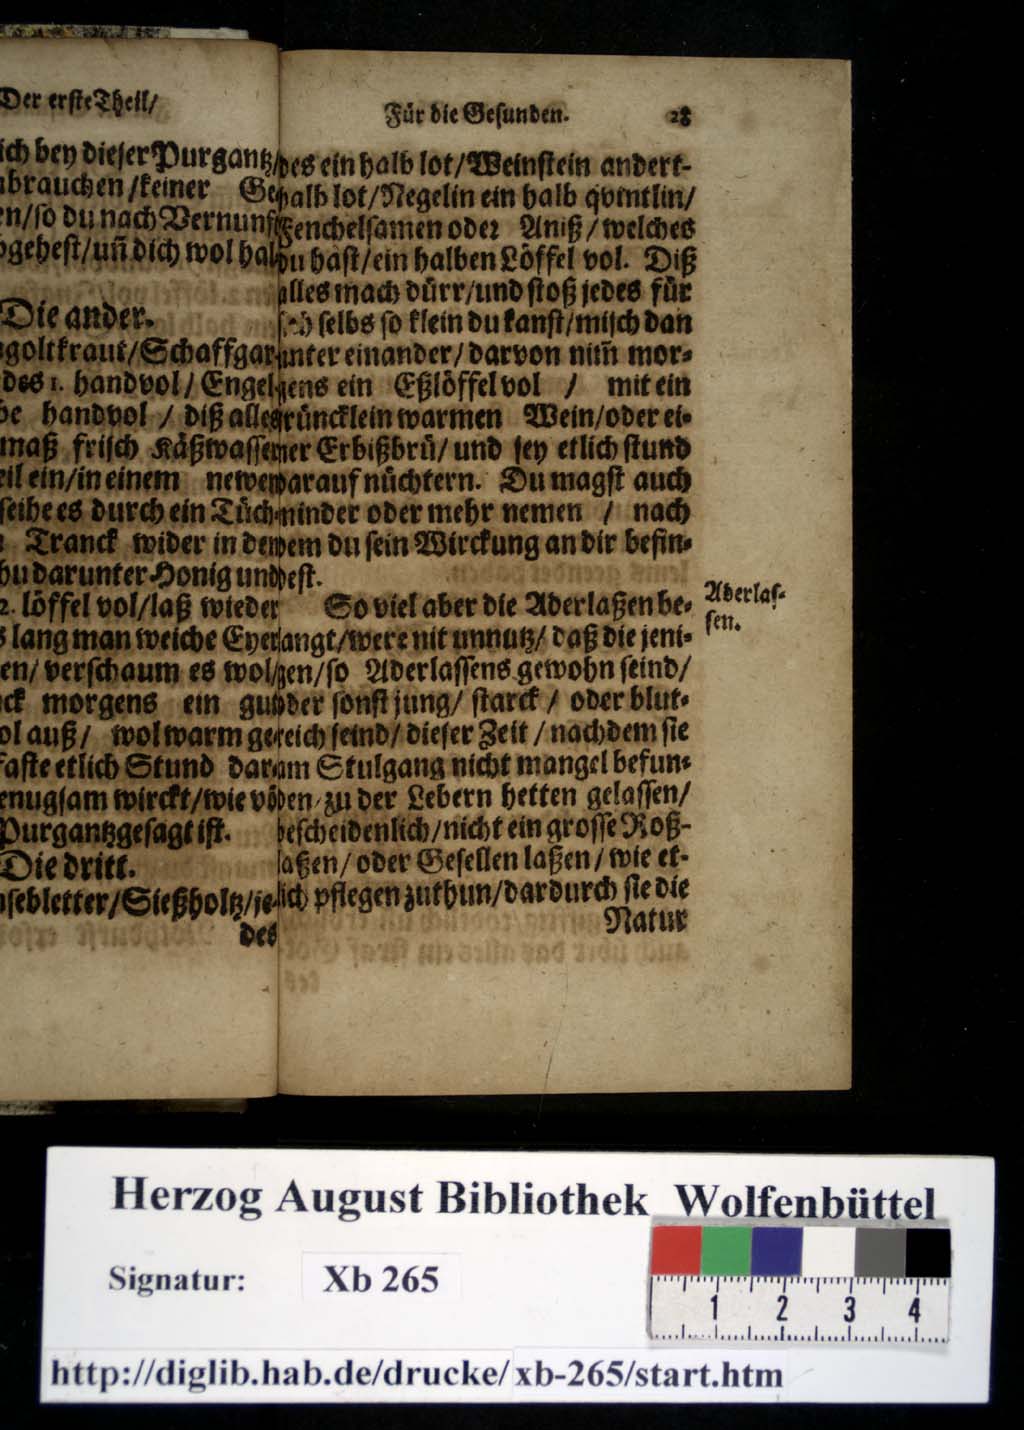 Der erste Theil/
ich bey dieser Purgantz/
brauchen/keiner Ge
en/so du nach Vernunf
gehest/uñ dich wol hal
Die ander.
goltkraut/Schaffgar-
des 1. handvol/Engel
be handvol / diß alles
maß frisch Käßwasser
eil ein/in einem newen
seihe es durch ein Tüch-
Tranck wider in den
bu darunter Honig und
2. löffel vol/laß wieder
s lang man weiche Eyer
en/ verschaum es wol/
ck morgens ein gut
ol auß/ wol warm ge-
faste etlich Stund dar-
enugsam wirckt/wie vō
Purgantz gesagt ist.
Die dritt.
sebletter/Sießholtz/je-
des
Für die Gesunden. 28
des ein halb lot/Weinstein andert-
halb lot/Negelin ein halb qvintlin/
Fenchelsamen oder Aniß/welches
du hast/ein halben Löffel vol. Diß
alles mach dürr/und stoß jedes für
sich selbs so klein du kanst/misch dan
unter einander/darvon nim̃ mor-
gens ein Eßlöffel vol / mit ein
trüncklein warmen Wein/oder ei-
ner Erbißbrü/ und sey etlich stund
darauf nüchtern. Du magst auch
minder oder mehr nemen / nach
dem du sein Wirckung an dir befin-
dest.
So viel aber die Aderlaßen be-
langt/were nit unnutz/ daß die jeni-
gen/so Aderlassens gewohn seind/
oder sonst jung/ starck / oder blut-
reich seind/ dieser Zeit / nachdem sie
am Stulgang nicht mangel befun-
den/zu der Lebern hetten gelassen/
bescheidenlich/nicht ein grosse Roß-
laßen/ oder Gesellen laßen/wie et-
lich pflegen zuthun/dardurch sie die
Natur
Aderlas-
sen.
Herzog August Bibliothek Wolfenbüttel
Signatur: Xb 265
1 2 3 4
http://diglib.hab.de/drucke/xb-265/start.htm